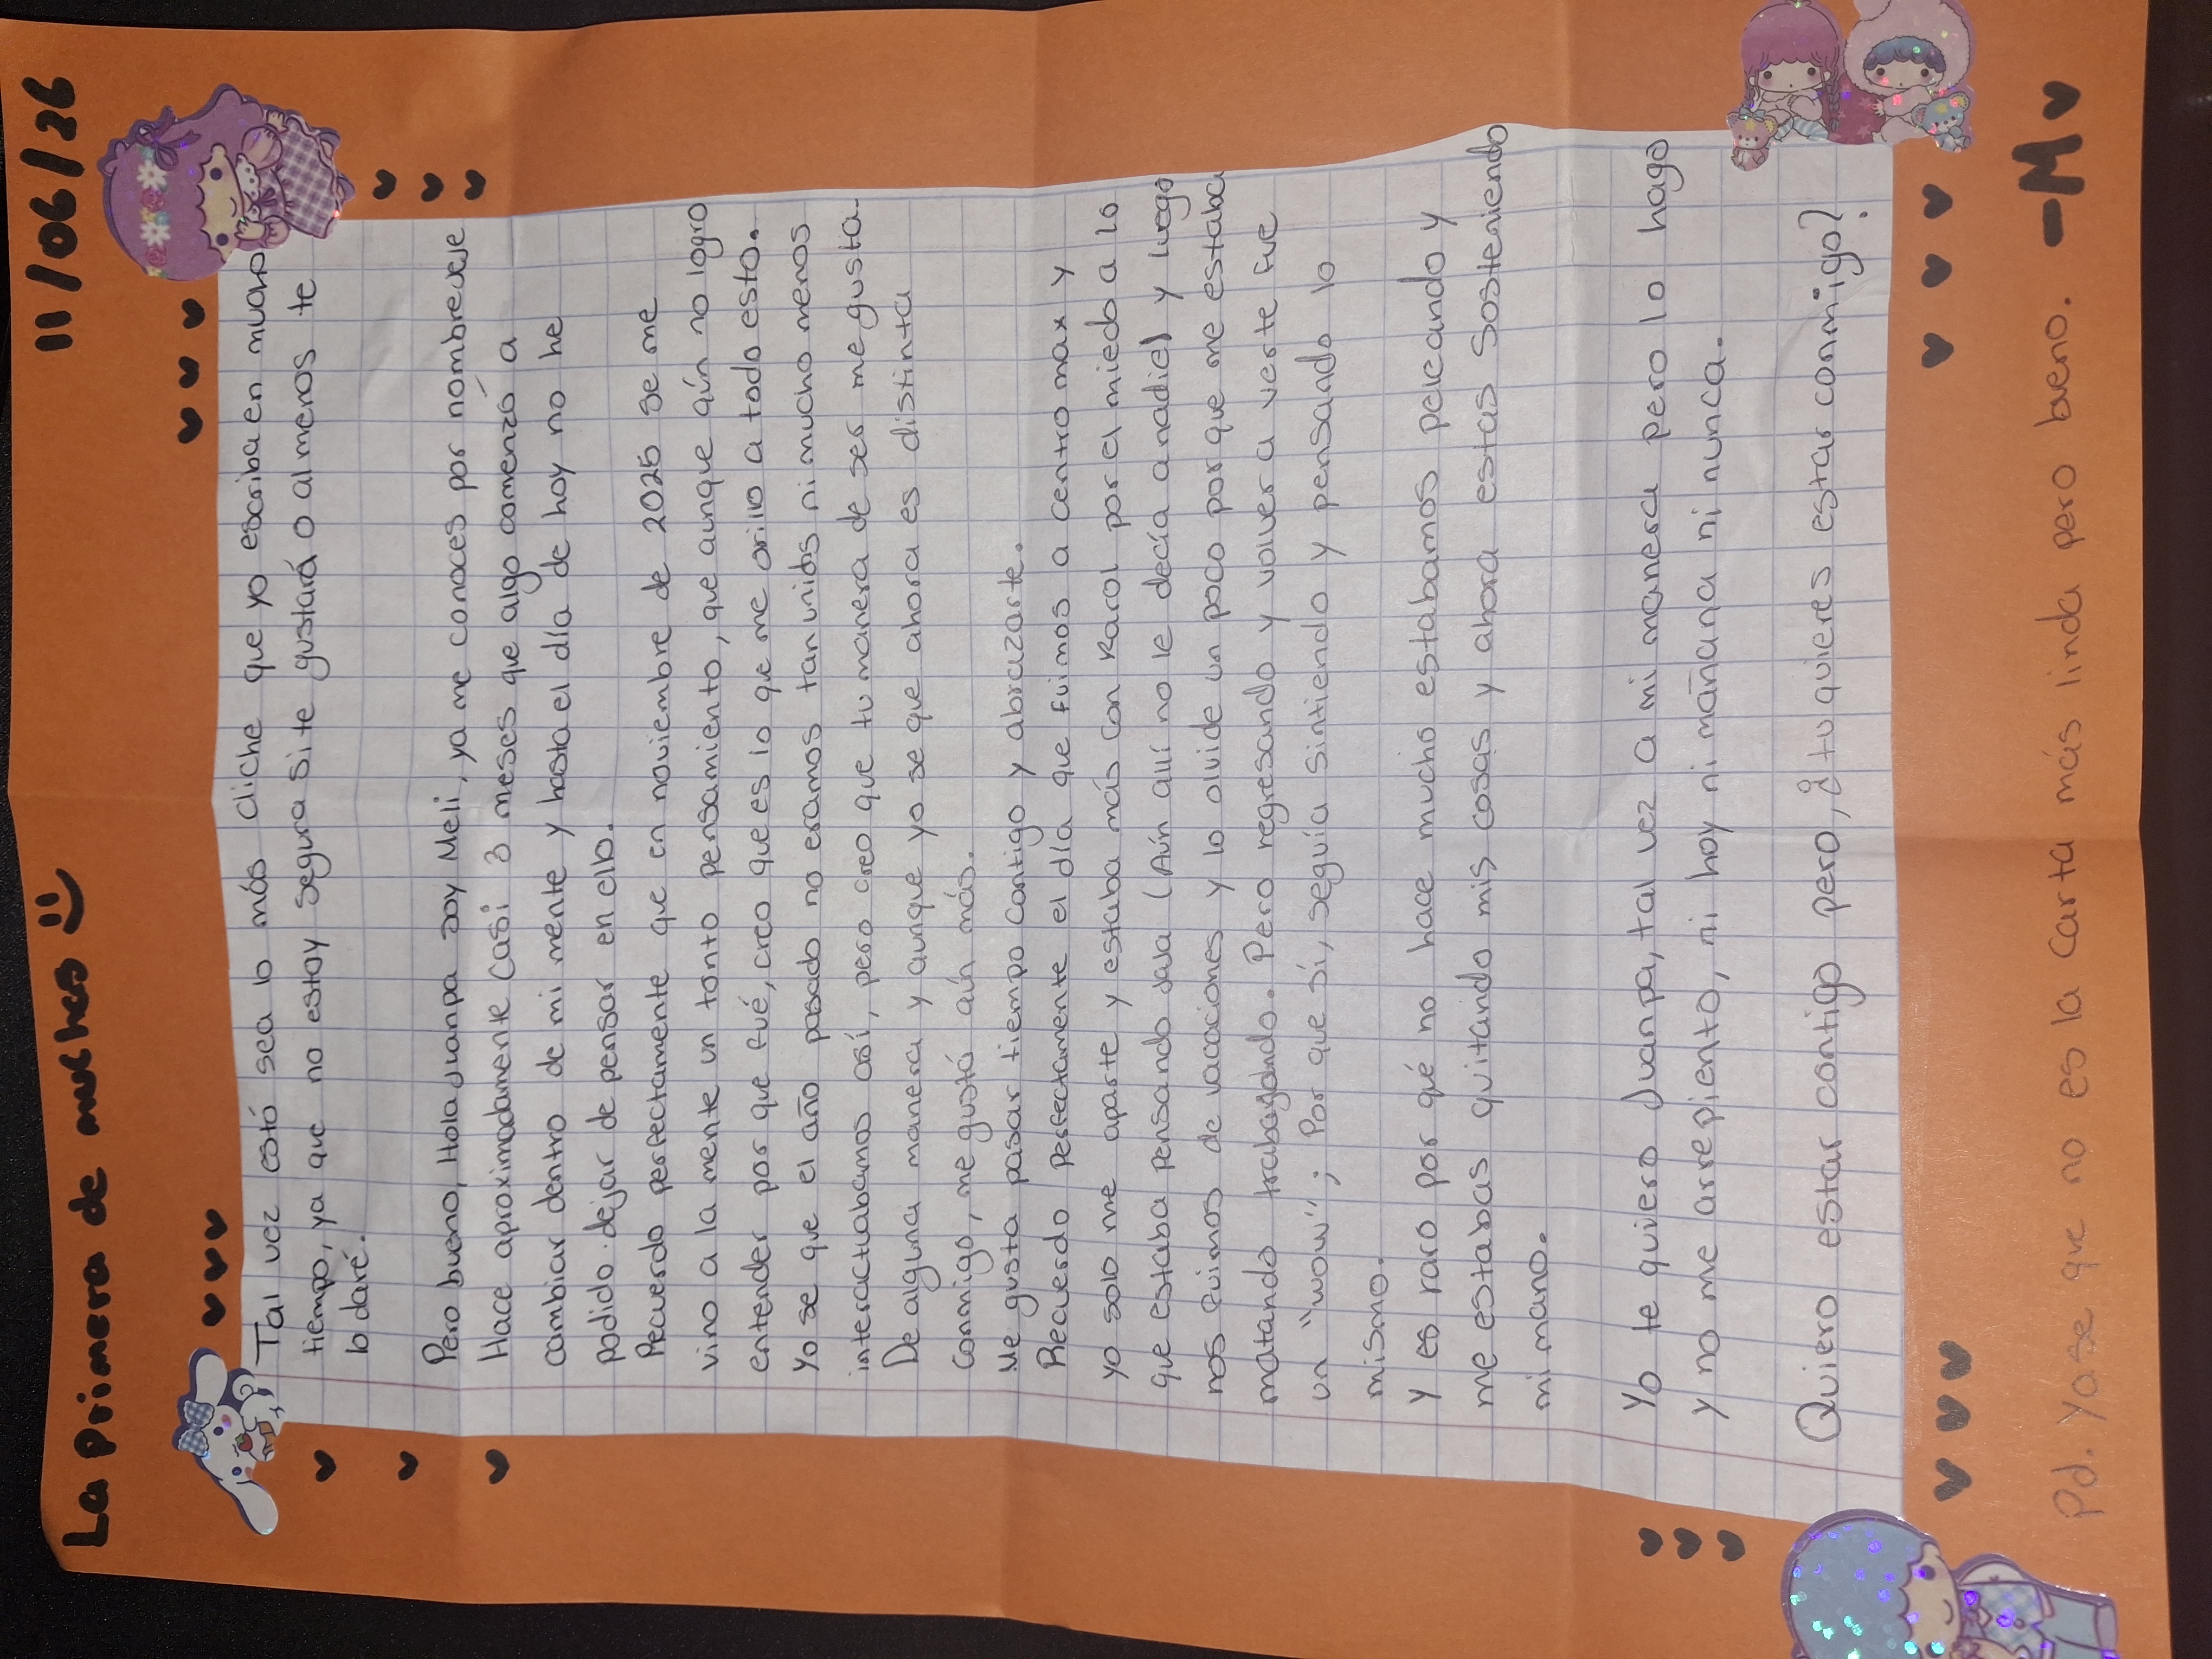 La Primera de muchas :)
11/06/26
Tal vez estó sea lo más cliche que yo escriba en mucho
tiempo, ya que no estoy segura si te gustará o almenos te
lo daré.
Pero bueno, Hola Juanpa soy Meli, ya me conoces por nombreueje
Hace aproximadamente casi 3 meses que algo comenzó a
cambiar dentro de mi mente y hasta el día de hoy no he
podido dejar de pensar en ello.
Recuerdo perfectamente que en noviembre de 2025 se me
vino a la mente un tonto pensamiento, que aunque aún no logro
entender por que fué, creo que es lo que me orillo a todo esto.
Yo se que el año pasado no eramos tan unidos ni mucho menos
interactuabamos así, pero creo que tu manera de ser me gusta.
De alguna manera y aunque yo se que ahora es distinta
conmigo, me gustá aún más.
Me gusta pasar tiempo contigo y abrazarte.
Recuerdo perfectamente el día que fuimos a centro max y
yo solo me aparte y estaba más con Karol por el miedo a lo
que estaba pensando jaja (Aún allí no le decía a nadie) y luego
nos fuimos de vacaciones y lo olvide un poco por que me estaba
matando trabajando. Pero regresando y volver a verte fue
un "wow"; Por que sí, seguía sintiendo y pensando lo
mismo.
Y es raro por qué no hace mucho estabamos peleando y
me estabas quitando mis cosas y ahora estas sosteniendo
mi mano.
Yo te quiero Juanpa, tal vez a mi manera pero lo hago
y no me arrepiento, ni hoy ni mañana ni nunca.
Quiero estar contigo pero, ¿tu quieres estar conmigo?
Pd. Ya se que no es la carta más linda pero bueno. -M♥